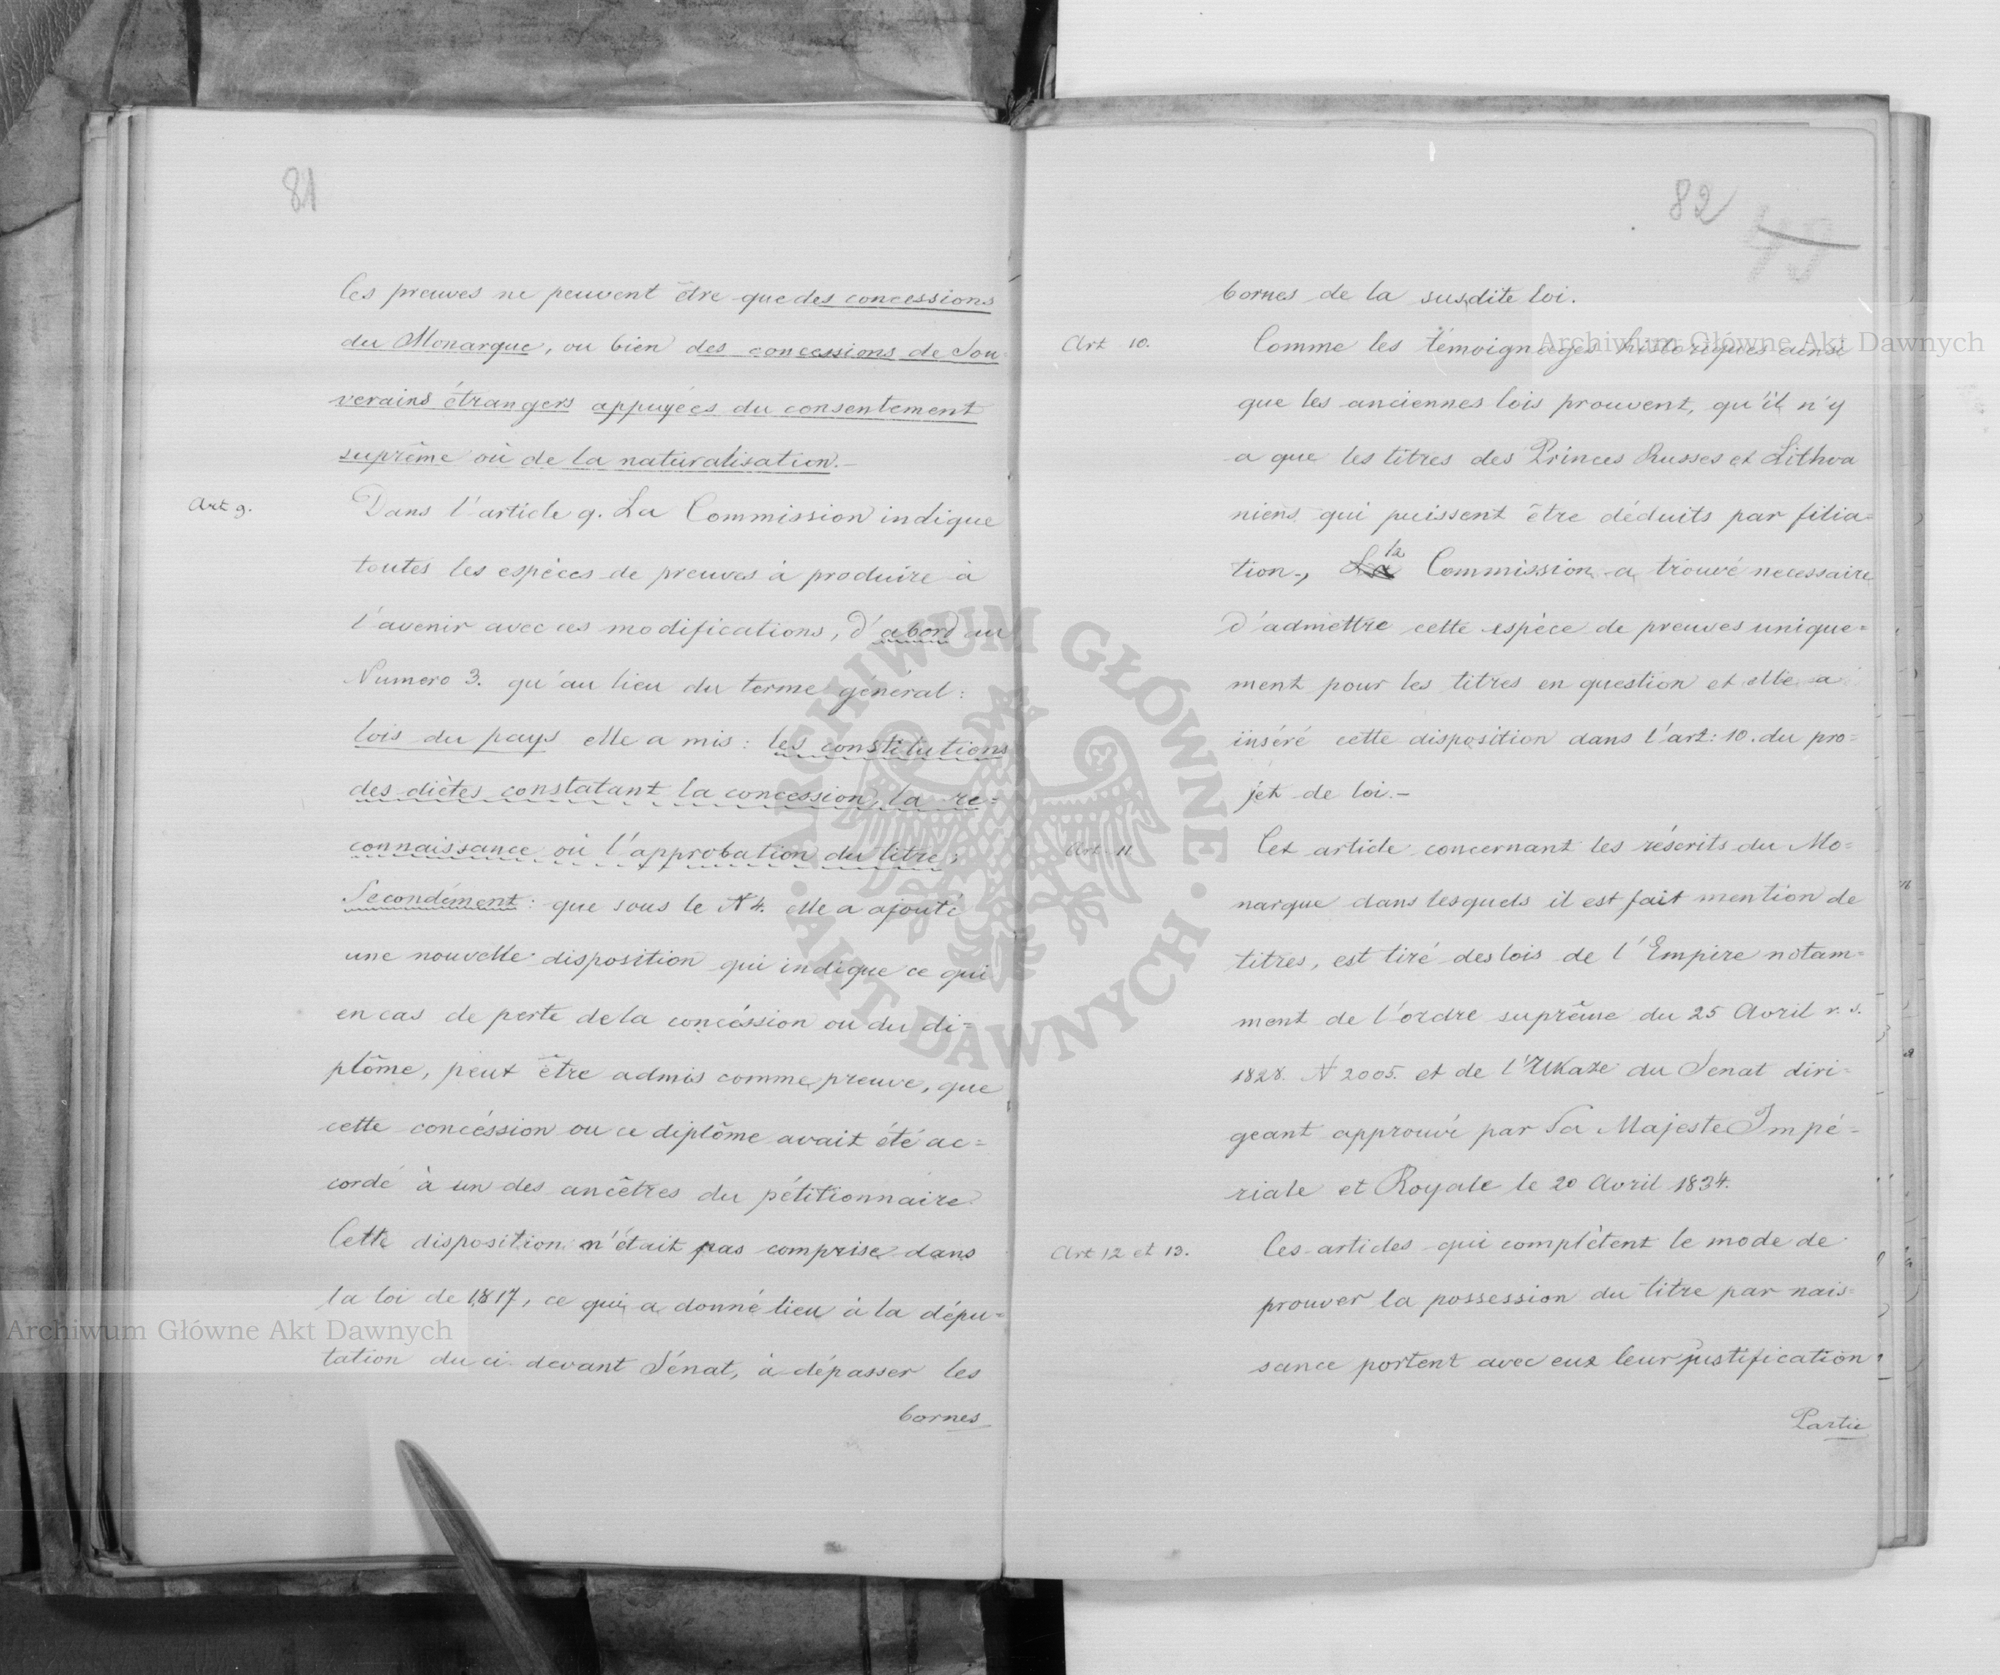 81
Ces preuves ne peuvent être que des concessions
du Monarque, ou bien des concessions de Sou-
verains étrangers appuyées du consentement
suprême où de la naturalisation.—
Art 9.
Dans l'article 9. La Commission indique
toutes les espèces de preuves à produire à
l'avenir avec ces modifications, d'abord au
Numero 3. qu'au lieu du terme général:
lois du pays elle a mis: les constitutions
des diètes constatant la concession, la re=
connaissance où l'approbation du titre,
Secondément: que sous le N 4. elle a ajouté
une nouvelle disposition qui indique ce qui
en cas de perte de la concéssion ou du di=
plôme, peut être admis comme preuve, que
cette concéssion ou ce diplôme avait été ac=
cordé à un des ancêtres du pétitionnaire.
Cette disposition n'était pas comprise dans
la loi de 1817, ce qui a donné lieu à la dépu=
tation du ci-devant Sénat, à dépasser les
bornes
82
bornes de la susdite loi.
Art 10.
Comme les témoignages historiques ainsi
que les anciennes lois prouvent, qu'il n'y
a que les titres des Princes Russes et Lithva
niens qui puissent être déduits par filia=
tion, La la Commission a trouvé necessaire
d'admettre cette espèce de preuves unique=
ment pour les titres en question et elle a
inséré cette disposition dans l'art: 10. du pro=
jet de loi.—
Art 11
Cet article concernant les réscrits du Mo=
narque dans lesquels il est fait mention de
titres, est tiré des lois de l'Empire notam=
ment de l'ordre suprême du 25 Avril v. s.
1828. N 2005. et de l'Ukaze du Senat diri=
geant approuvé par Sa Majeste Impé=
riale et Royale le 20 Avril 1834.
Art 12 et 13.
Ces articles qui complètent le mode de
prouver la possession du titre par nais=
sance portent avec eux leur justification
Partie
Archiwum Główne Akt Dawnych
Archiwum Główne Akt Dawnych
ARCHIWUM GŁÓWNE · AKT DAWNYCH ·